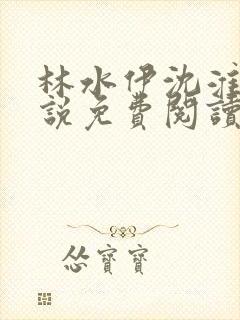 林水伊沈淮
說免費閱讀
怂寶寶